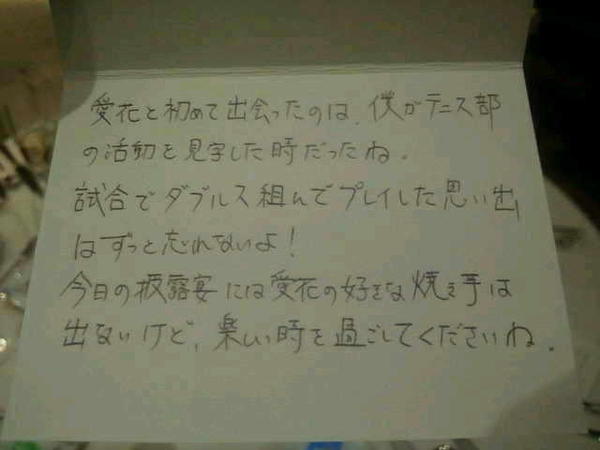 愛花と初めて出会ったのは、僕がテニス部
の活動を見学した時だったね。
試合でダブルス組んでプレイした思い出
はずっと忘れないよ!
今日の披露宴には愛花の好きな焼き手は
出ないけど、楽しい時を過ごしてくださいね。